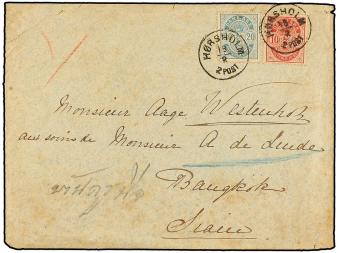 HØRSHOLM
2 POST
20
HØRSHOLM
2 POST
10
Monsieur Aage Westenholz
aux soins de Monsieur A de Linde
Bangkok
Siam